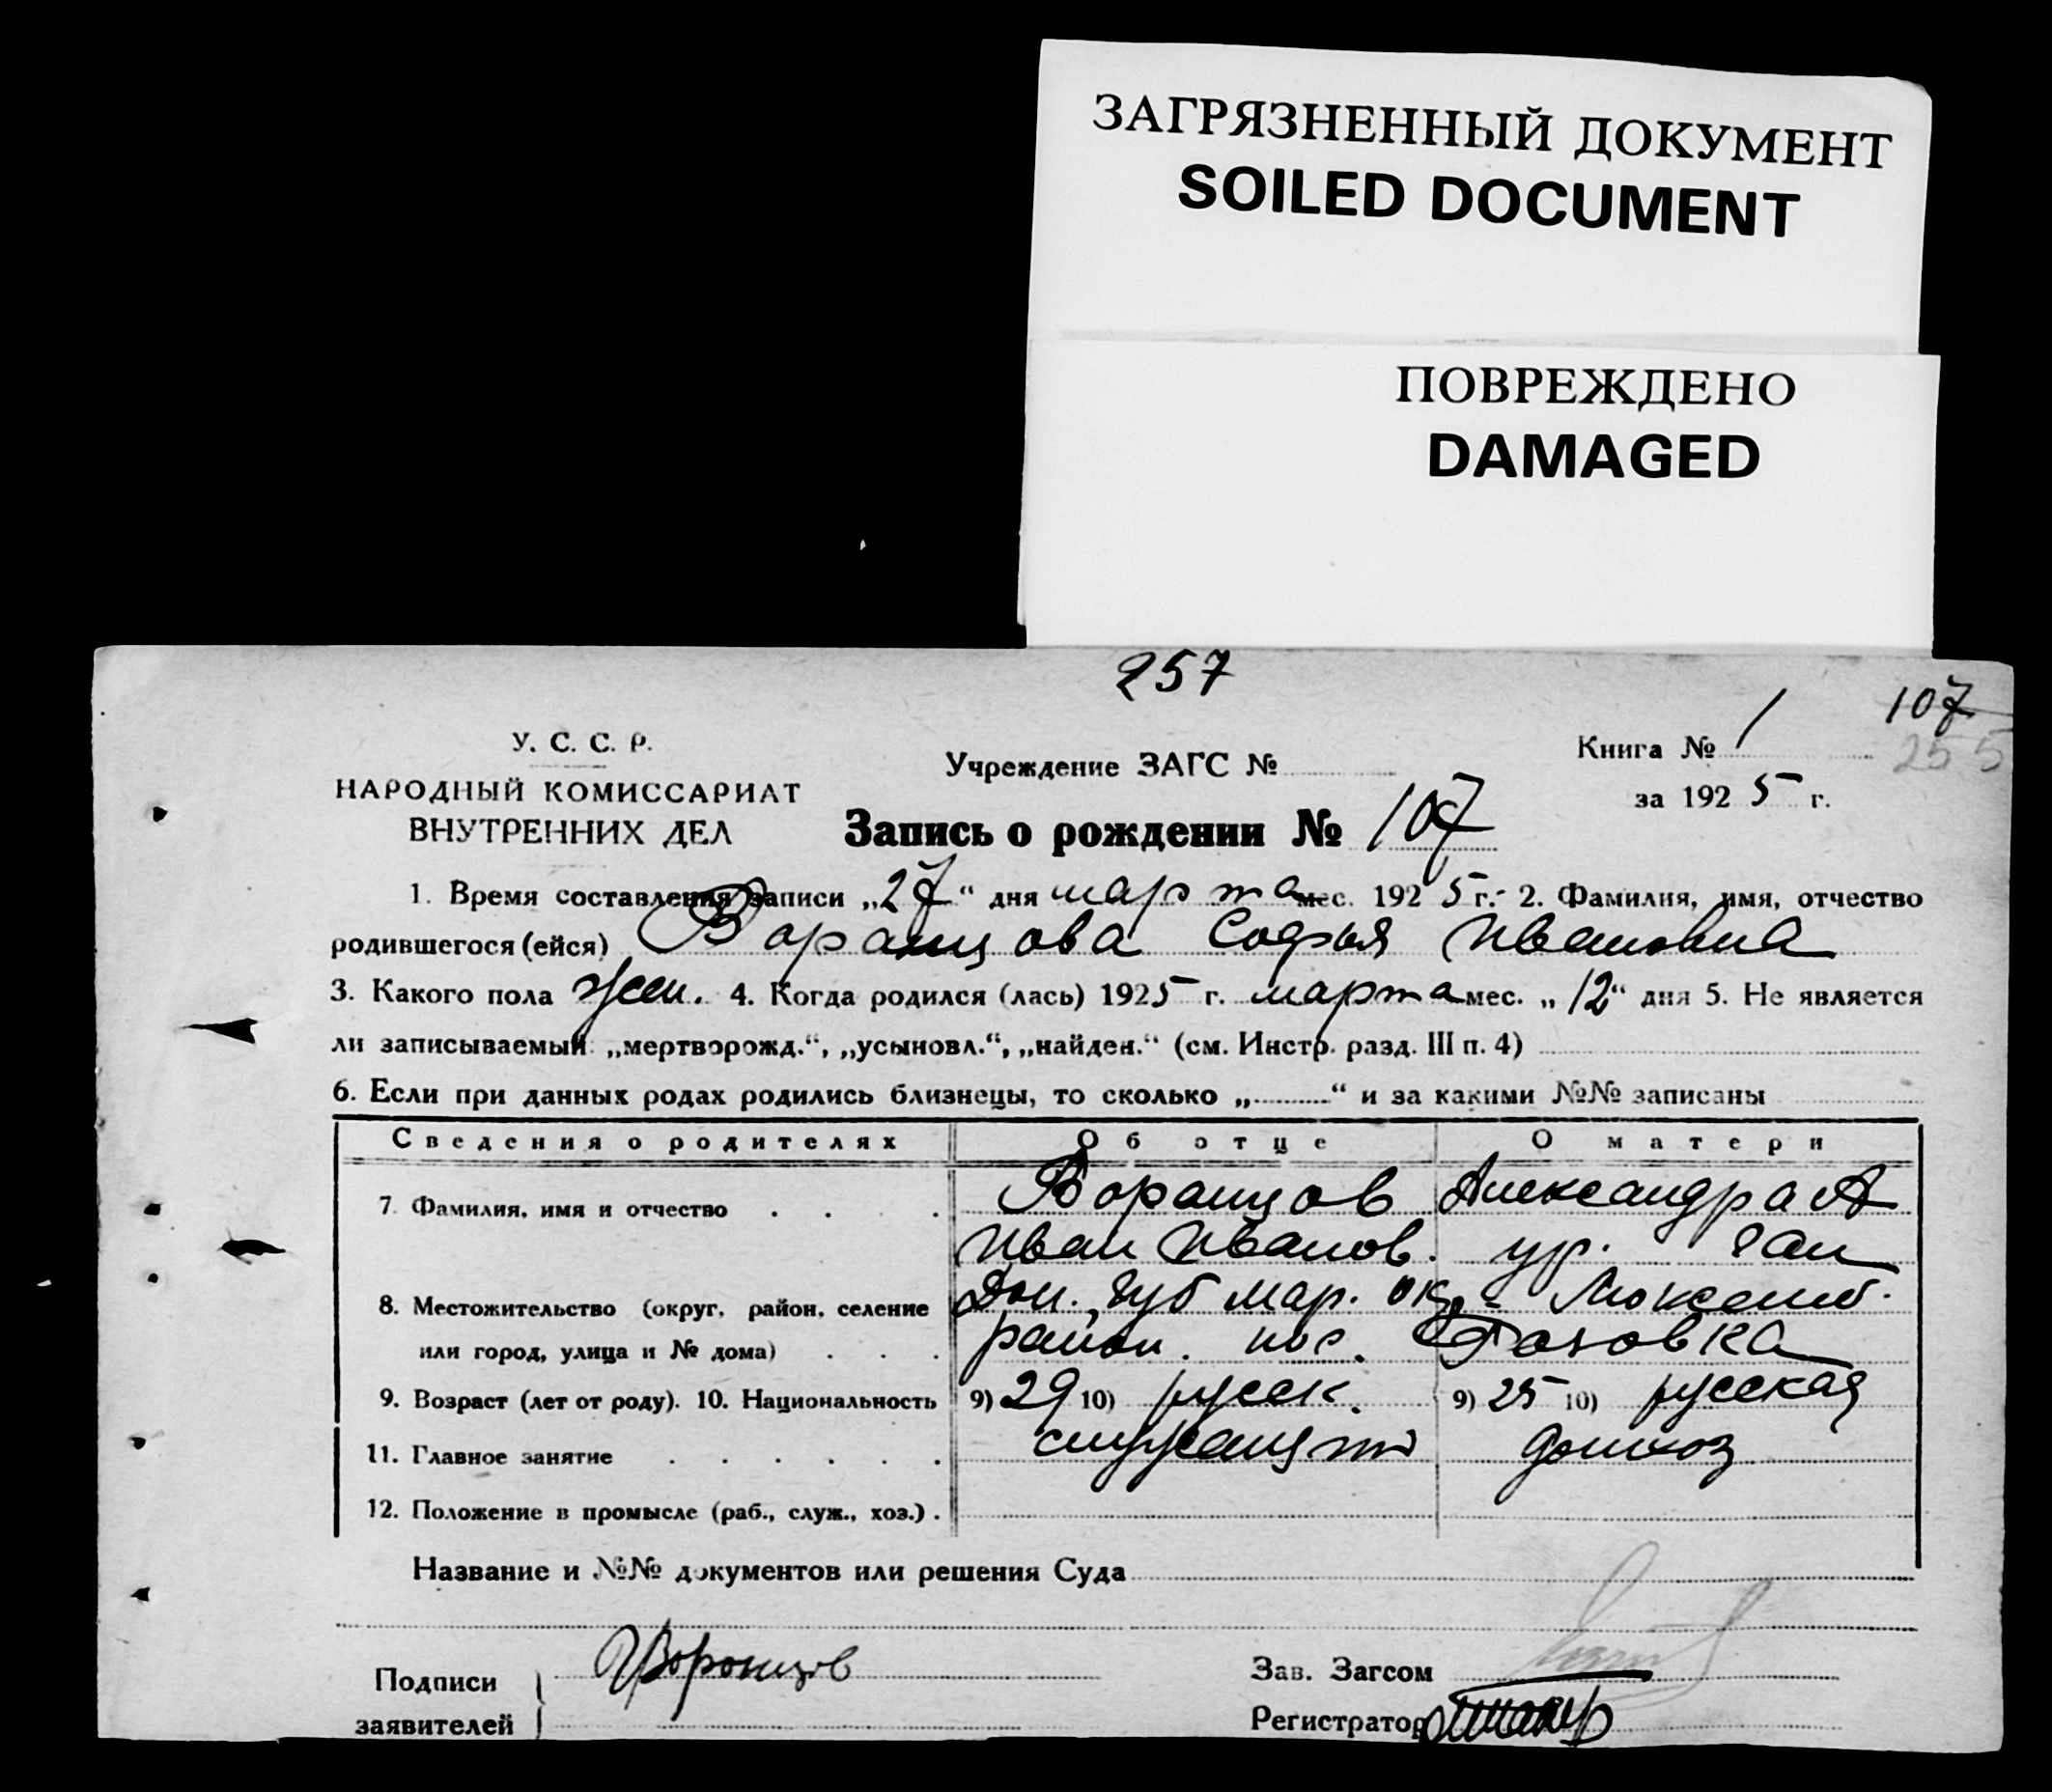 ЗАГРЯЗНЕННЫЙ ДОКУМЕНТ
SOILED DOCUMENT
ПОВРЕЖДЕНО
DAMAGED
257
107
У. С. С. Р.
Учреждение ЗАГС №
Книга № 1
255
НАРОДНЫЙ КОМИССАРИАТ
за 1925 г.
ВНУТРЕННИХ ДЕЛ
Запись о рождении № 107
1. Время составления записи „27“ дня марта мес. 1925 г.- 2. Фамилия, имя, отчество
родившегося (ейся) Воранцова Софья Ивановна
3. Какого пола жен. 4. Когда родился (лась) 1925 г. марта мес. „12“ дня 5. Не является
ли записываемый: „мертворожд.“, „усыновл.“, „найден.“ (см. Инстр. разд. III п. 4)
6. Если при данных родах родились близнецы, то сколько „..........“ и за какими №№ записаны
Сведения о родителях Об отце О матери
7. Фамилия, имя и отчество Воранцов Александра А
Иван Иванов. ур. Ган
8. Местожительство (округ, район, селение Дон. губ мар. окр-
или город, улица и № дома) район. пос. Розовка
9. Возраст (лет от роду). 10. Национальность 9) 29 10) русск. 9) 25 10) русская
11. Главное занятие домхоз
12. Положение в промысле (раб., служ., хоз.)
Название и №№ документов или решения Суда
Подписи заявителей Воронцов
Зав. Загсом
Регистратор